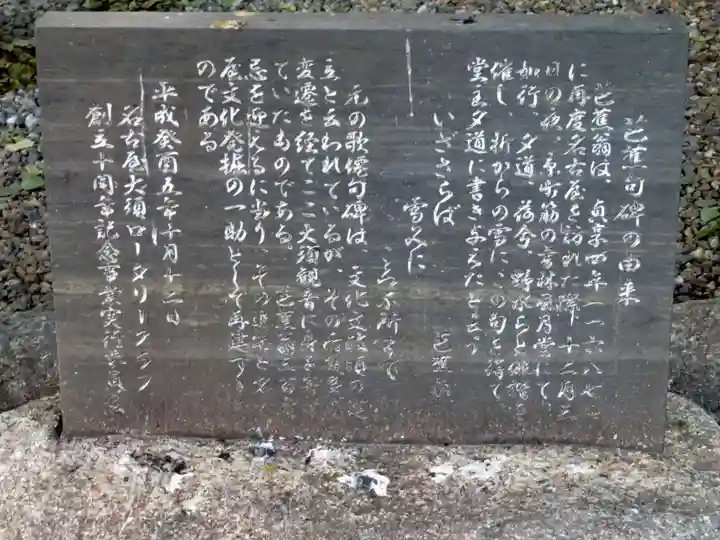 芭蕉句碑の由来
芭蕉翁は、貞享四年(一六八七
に再度名古屋を訪れた際、十二月三
日の夜、本町筋の書林風月堂にて
如行、夕道、荷兮、野水らと俳諧を
催し、折からの雪に、この句を得て
堂主夕道に書き与えたと云う
いざさらば
雪見に
ころぶ所まで
芭蕉翁
元の歌僊句碑は、文化文政頃の
立と云われているが、その後
変遷を経てここ大須観音に
ていたものである。芭蕉翁三百
忌を迎えるに当り、その
屋文化発掘の一助として再建す
のである
平成癸酉五年十月十二日
名古屋大須ロータリークラブ
創立十周年記念事業実行委員会